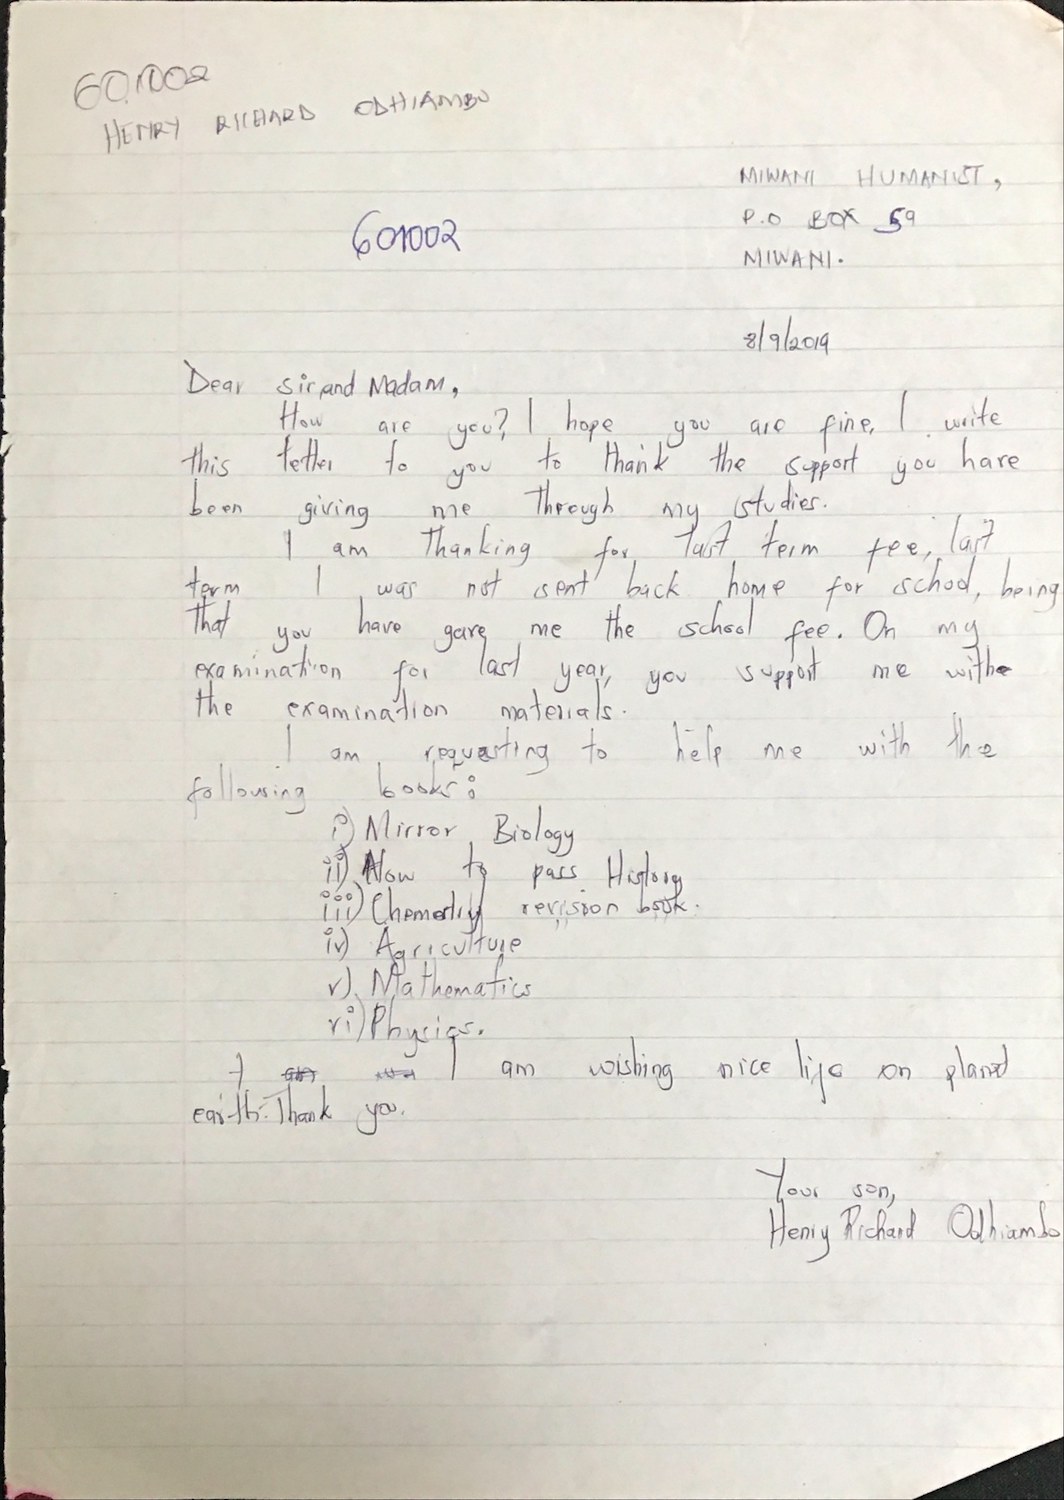 601002
HENRY RICHARD ODHIAMBO
MIWANI HUMANIST,
P.O BOX 59
601002
MIWANI.
8/9/2019
Dear Sir and Madam,
How are you? I hope you are fine, I write
this letter to you to thank the support you have
been giving me through my studies.
I am thanking for last term fee, last
term I was not sent back home for school, being
that you have gave me the school fee. On my
examination for last year, you support me withe
the examination materials.
I am requesting to help me with the
following books:
i) Mirror Biology
ii) How to pass History
iii) Chemestry revision book.
iv) Agriculture
v). Mathematics
vi) Physics.
I I am wishing nice life on planet
earth. Thank you.
Your son,
Henry Richard Odhiambo